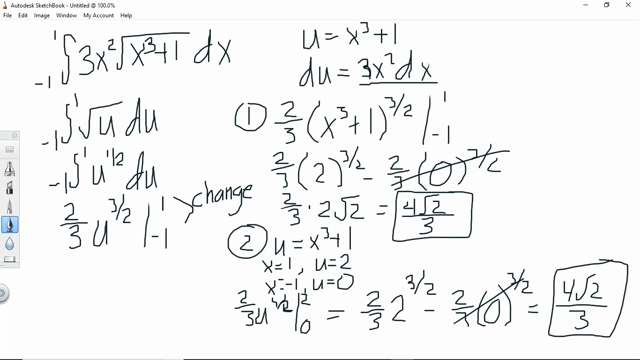 Autodesk SketchBook - Untitled @ 100.0%
File Edit Image Window My Account Help
-1∫¹ 3x²√(x³+1) dx
-1∫¹ √u du
-1∫¹ u^1/2 du
2/3 u^3/2 |¹₋₁ change
u = x³+1
du = 3x²dx
① 2/3 (x³+1)^3/2 |¹₋₁
2/3 (2)^3/2 - 2/3 (0)^3/2
2/3 · 2√2 = 4√2/3
② u = x³+1
x=1, u=2
x=-1, u=0
2/3 u^3/2 |²₀ = 2/3 2^3/2 - 2/3 (0)^3/2 = 4√2/3